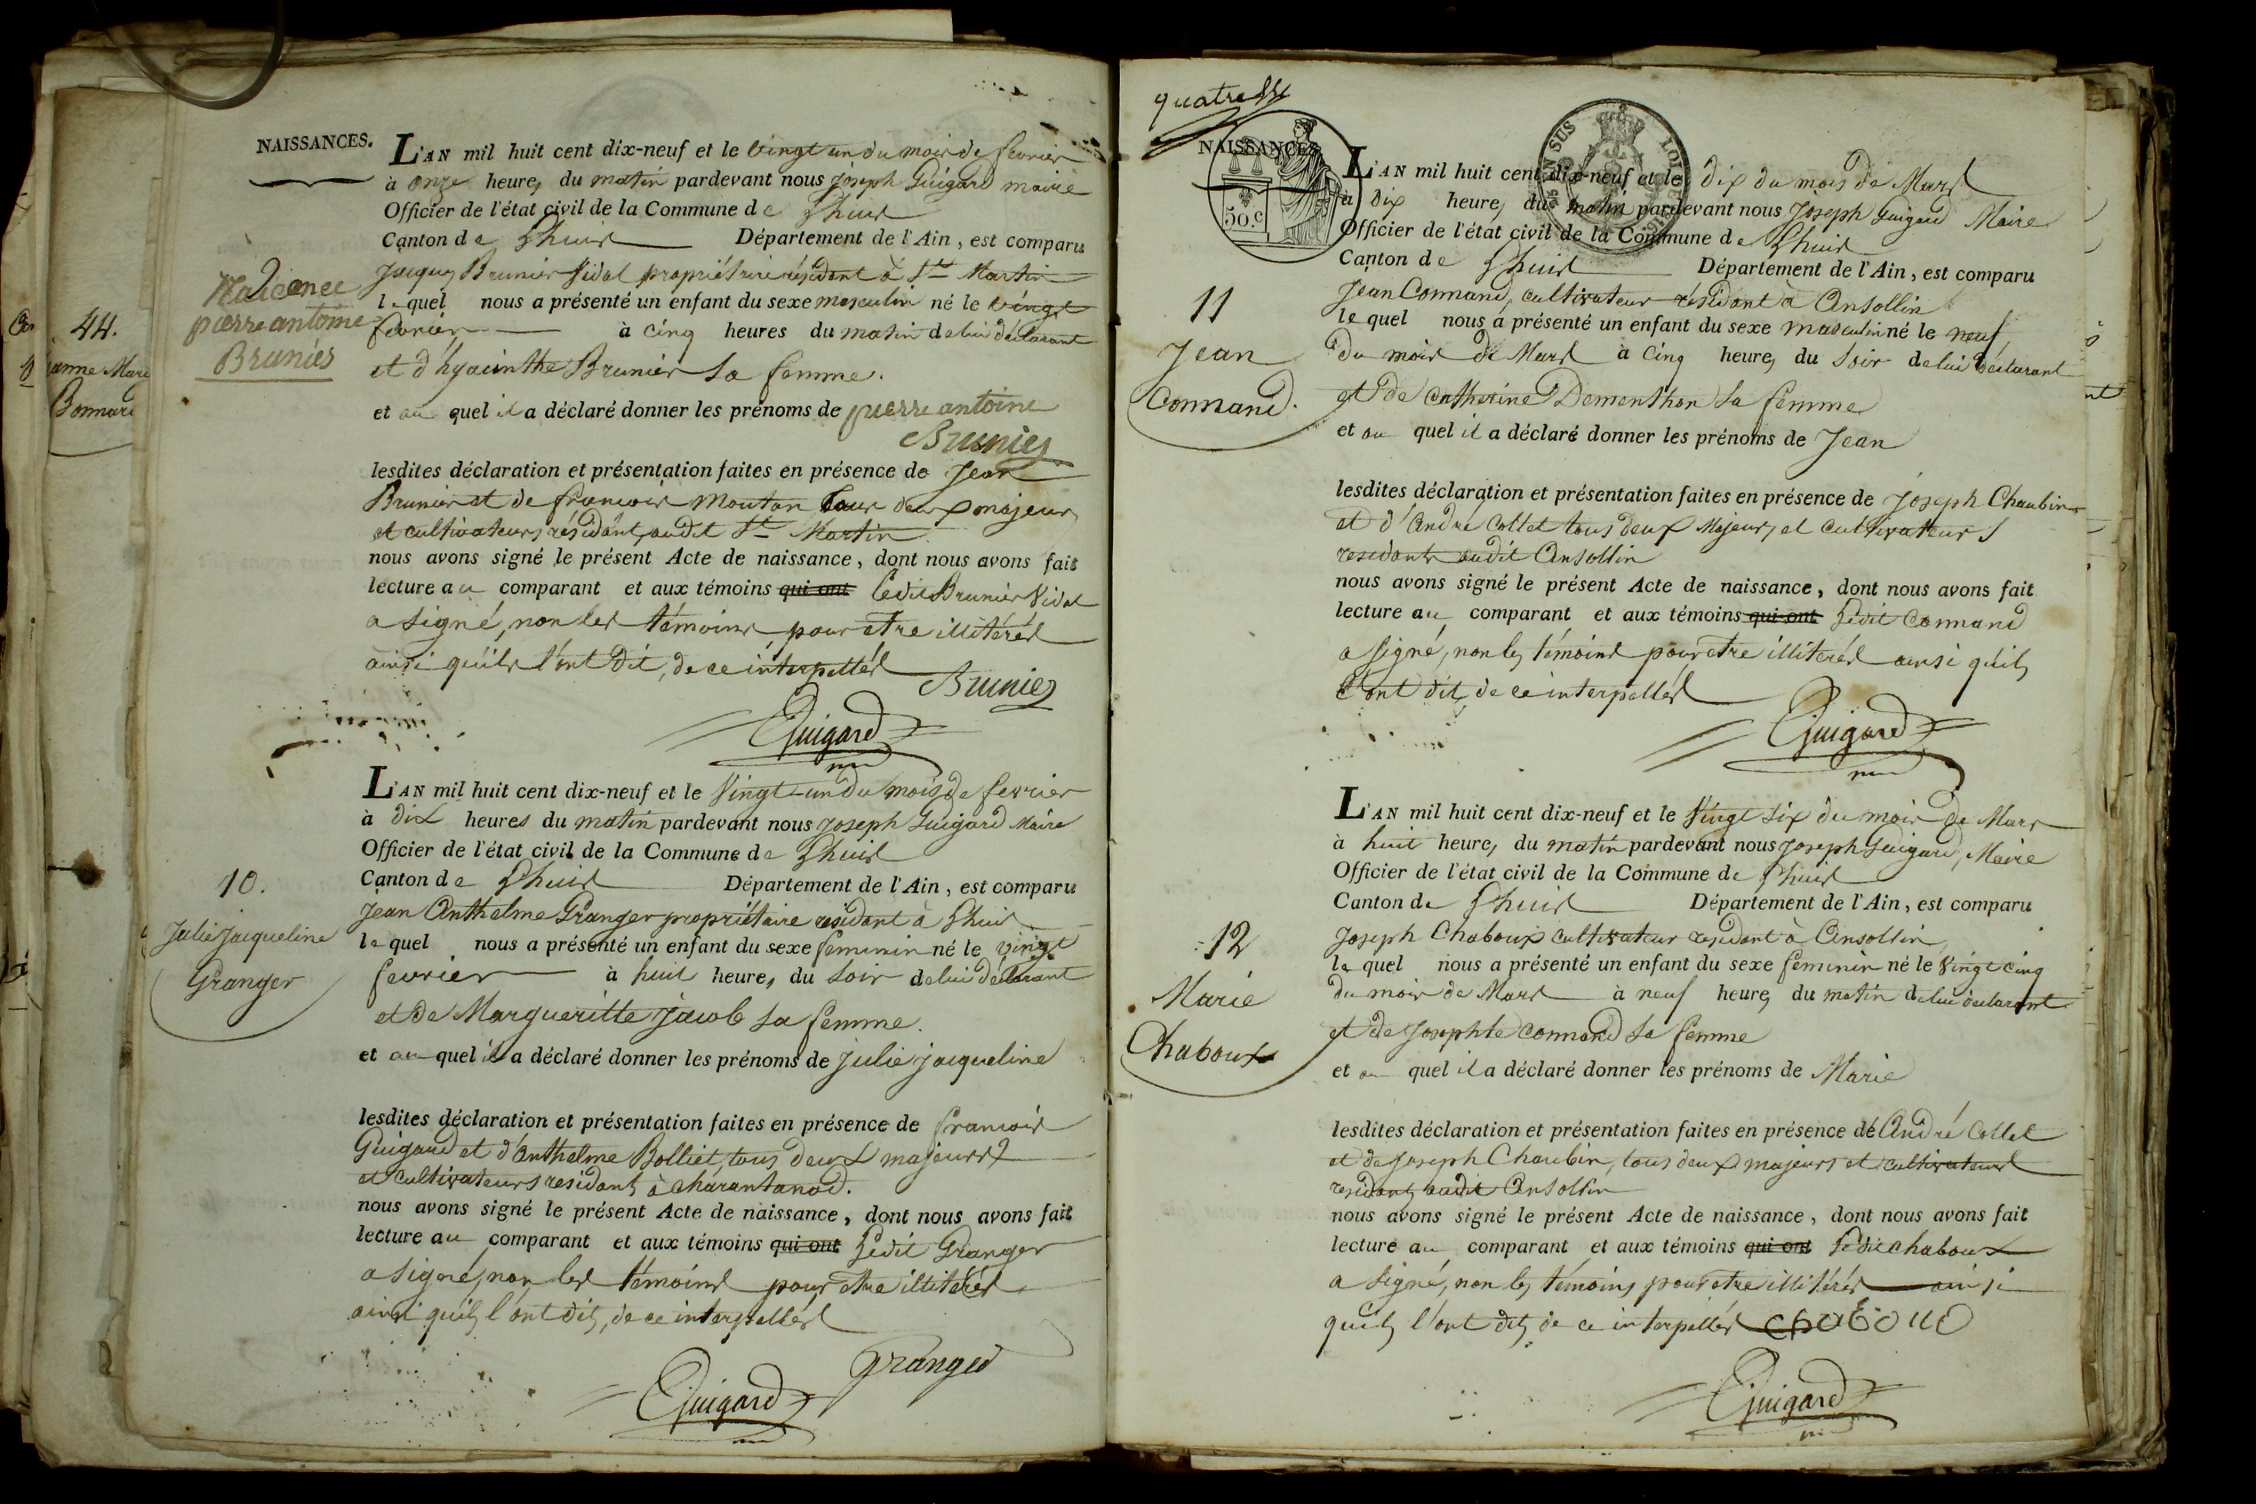 44.
anne Marie
Bonnard
NAISSANCES.
Naicence
pierre antoine
Brunier
L'AN mil huit cent dix-neuf et le vingt un du mois de fevrier
à onze heures du matin pardevant nous Joseph Guigard maire
Officier de l'état civil de la Commune de Lhuis
Canton de Lhuis Département de l'Ain, est comparu
Jacques Brunier Vidal propriétaire résidant à St Martin
lequel nous a présenté un enfant du sexe masculin né le vingt
fevrier à cinq heures du matin de lui déclarant
et d'hyacinthe Brunier sa femme.
et au quel il a déclaré donner les prénoms de pierre antoine
Brunier
lesdites déclaration et présentation faites en présence de Jean
Brunier et de francois Moutan tous deux majeurs
et cultivateurs résidants audit St Martin
nous avons signé le présent Acte de naissance, dont nous avons fait
lecture au comparant et aux témoins qui ont Ledit Brunier Vidal
a signé, non les témoins pour etre illitérés
ainsi qu'ils l'ont dit, de ce interpellés Brunier
Guigard
10.
Julie jacqueline
Granger
L'AN mil huit cent dix-neuf et le Vingt-un du mois de fevrier
à dix heures du matin pardevant nous Joseph Guigard Maire
Officier de l'état civil de la Commune de Lhuis
Canton de Lhuis Département de l'Ain, est comparu
Jean Anthelme Granger propriétaire residant à Lhuis
lequel nous a présenté un enfant du sexe feminin né le vingt
fevrier à huit heures du soir de lui déclarant
et de Margueritte jacob sa femme.
et au quel il a déclaré donner les prénoms de julie jacqueline
lesdites déclaration et présentation faites en présence de francois
Guigard et d'Anthelme Bolliet, tous deux majeurs
et cultivateurs residants à charantanod.
nous avons signé le présent Acte de naissance, dont nous avons fait
lecture au comparant et aux témoins qui ont Ledit Granger
a signé, non les témoins pour etre illitérés
ainsi qu'ils l'ont dit, de ce interpellés
Granger
Guigard
quatre
NAISSANCES
50.c
11
Jean
Connand.
L'AN mil huit cent dix-neuf et le dix du mois de Mars
à dix heures du matin pardevant nous Joseph Guigard Maire
Officier de l'état civil de la Commune de Lhuis
Canton de Lhuis Département de l'Ain, est comparu
Jean Connand, cultivateur résidant à Ansollin
lequel nous a présenté un enfant du sexe masculin né le neuf
du mois de Mars à cinq heures du soir de lui déclarant
et de catherine Dementhon sa femme
et au quel il a déclaré donner les prénoms de Jean
lesdites déclaration et présentation faites en présence de Joseph Chaubin
et d'André Collet tous deux Majeurs et cultivateurs
residants audit Ansollin
nous avons signé le présent Acte de naissance, dont nous avons fait
lecture au comparant et aux témoins qui ont Ledit Connand
a signé, non les témoins pour etre illiterés ainsi qu'ils
l'ont dit, de ce interpellés
Guigard
12
Marie
Chaboux
L'AN mil huit cent dix-neuf et le Vingt six du mois de Mars
à huit heures du matin pardevant nous Joseph Guigard, Maire
Officier de l'état civil de la Commune de Lhuis
Canton de Lhuis Département de l'Ain, est comparu
Joseph Chaboux cultivateur residant à Ansollin
lequel nous a présenté un enfant du sexe feminin né le Vingt cinq
du mois de Mars à neuf heures du matin de lui déclarant
et de Josephte Connand sa femme
et au quel il a déclaré donner les prénoms de Marie
lesdites déclaration et présentation faites en présence de André Collet
et de Joseph Chaubin, tous deux majeurs et cultivateurs
residants audit Ansollin
nous avons signé le présent Acte de naissance, dont nous avons fait
lecture au comparant et aux témoins qui ont Ledit chaboux
a signé, non les témoins pour etre illitérés ainsi
qu'ils l'ont dit, de ce interpellés chaboud
Guigard